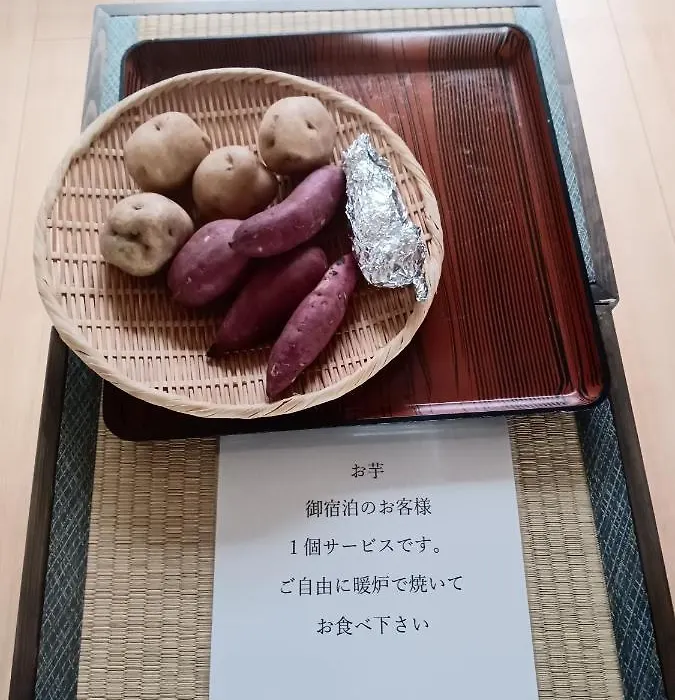 お芋
御宿泊のお客様
１個サービスです。
ご自由に暖炉で焼いて
お食べ下さい